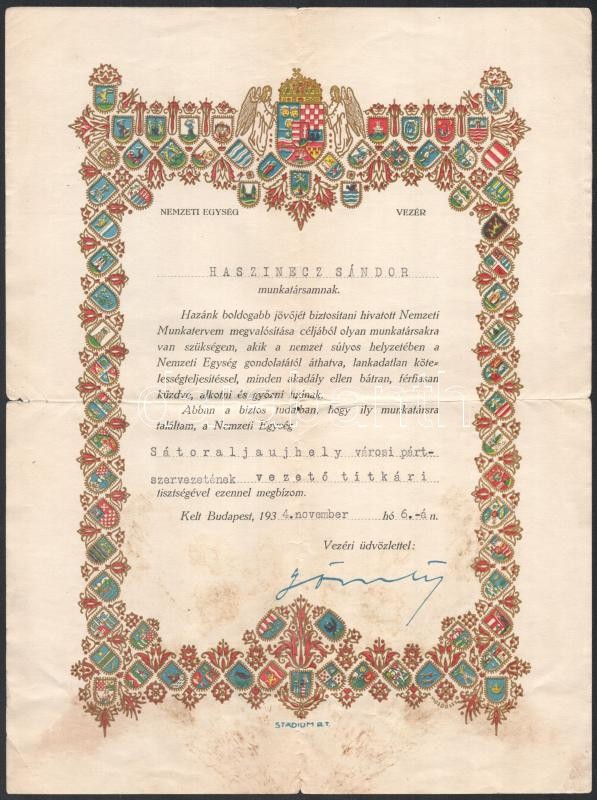 NEMZETI EGYSÉG VEZÉR
HASZINECZ SÁNDOR
munkatársamnak.
Hazánk boldogabb jövőjét biztosítani hivatott Nemzeti
Munkatervem megvalósítása céljából olyan munkatársakra
van szükségem, akik a nemzet súlyos helyzetében a
Nemzeti Egység gondolatától áthatva, lankadatlan köte-
lességteljesítéssel, minden akadály ellen bátran, férfiasan
küzdve, alkotni és győzni tudnak.
Abban a biztos tudatban, hogy ily munkatársra
találtam, a Nemzeti Egység
Sátoraljaujhely városi párt-
szervezetének vezető titkári
tisztségével ezennel megbízom.
Kelt Budapest, 1934.november hó 6.-á n.
Vezéri üdvözlettel:
STÁDIUM R.T.